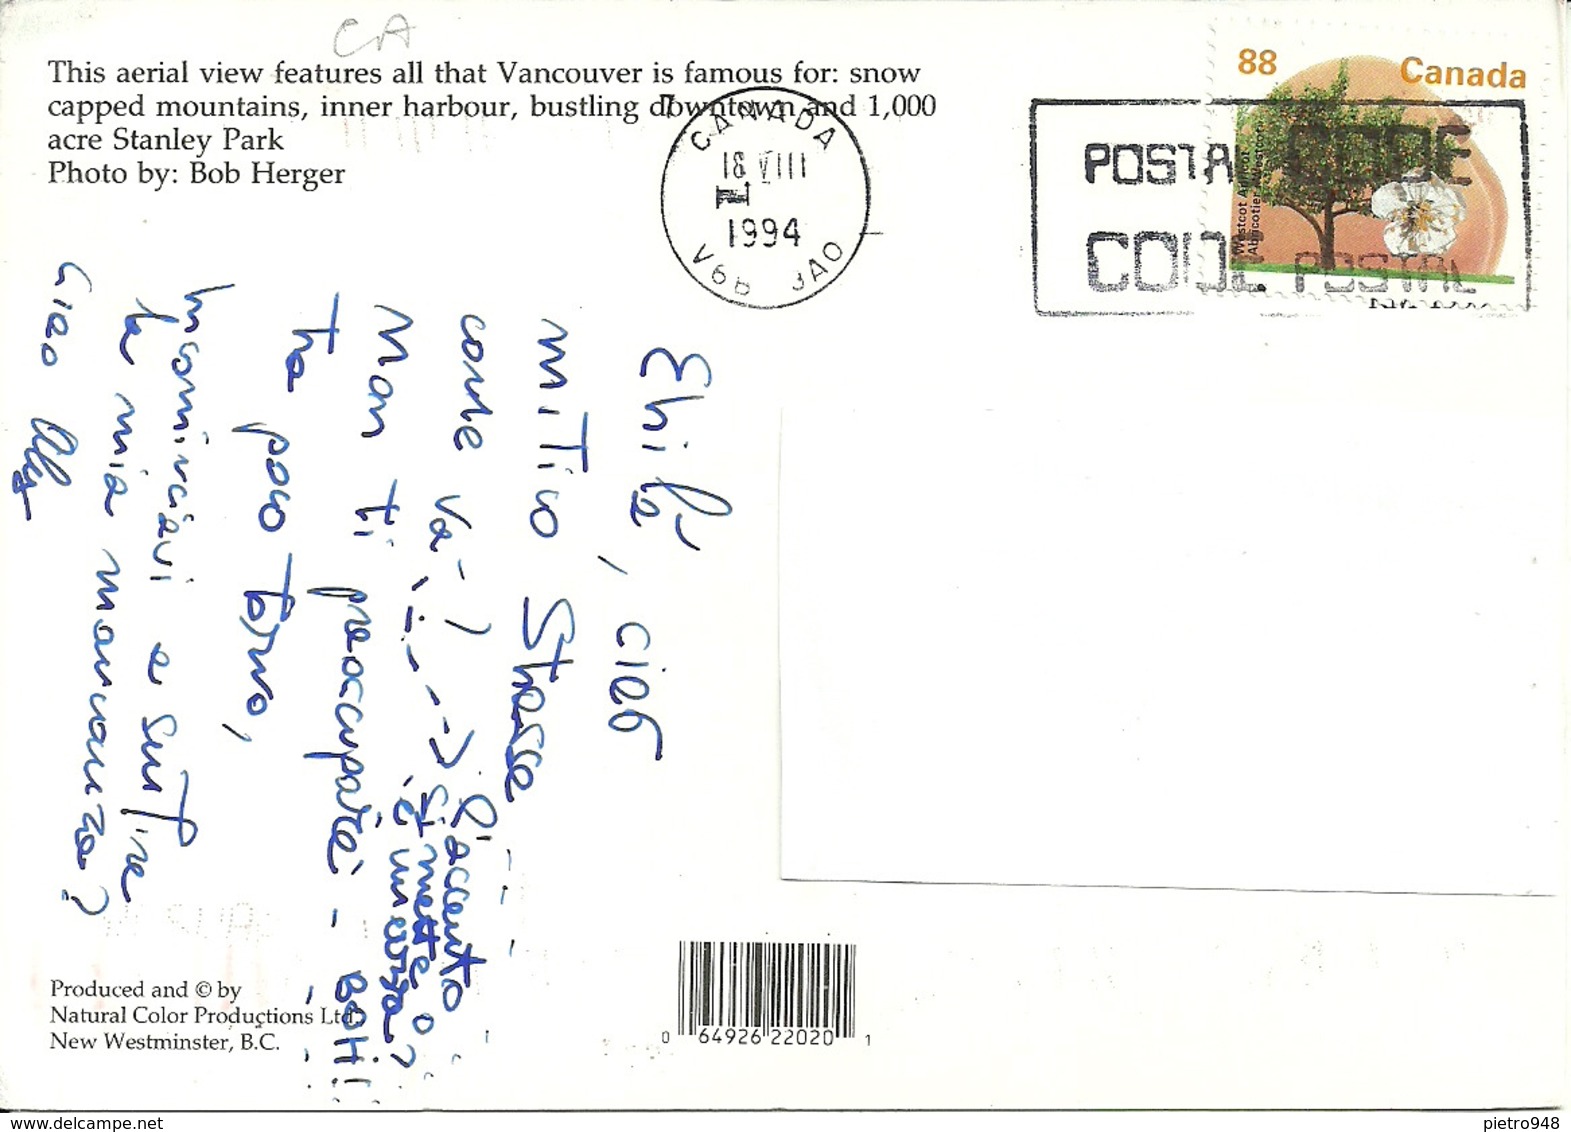 CA
This aerial view features all that Vancouver is famous for: snow
capped mountains, inner harbour, bustling downtown and 1,000
acre Stanley Park
Photo by: Bob Herger
CANADA
18 VIII
1994
V6B 3A0
88 Canada
Westcot Apricot
Abricotier Westcot
POSTAL CODE
CODE POSTAL
Ehilà, ciao
mitico
come va-!
l'accento
si mette o
è inverza?
Non ti preoccupare - BOH!
tra poco torno,
incominciavi a sentire
la mia mancanza?
Ciao
Produced and © by
Natural Color Productions Ltd.
New Westminster, B.C.
0 64926 22020 1
delcampe.net
pietro948